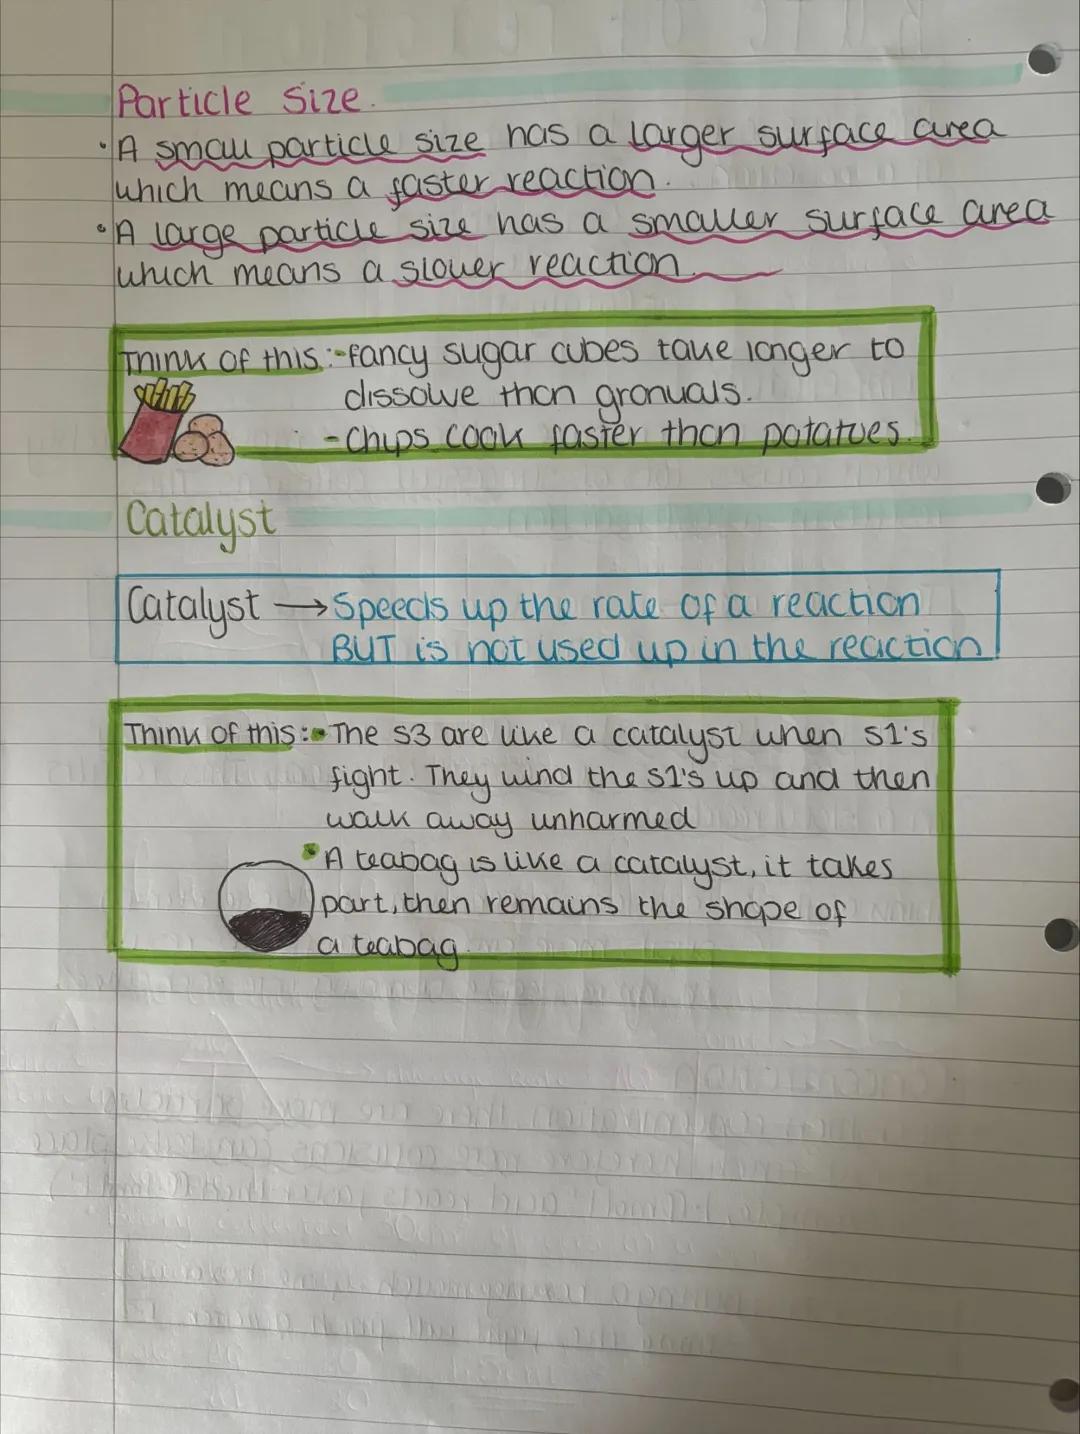 Particle Size.
• A small particle size has a larger surface area
which means a faster reaction.
• A large particle size has a smaller surface area
which means a slower reaction.
Think of this:-fancy sugar cubes take longer to
dissolve than gronuals.
-Chips cook faster than potatoes.
Catalyst
Catalyst → Speeds up the rate of a reaction
BUT is not used up in the reaction
Think of this:• The S3 are like a catalyst when S1's
fight. They wind the S1's up and then
walk away unharmed
• A teabag is like a catalyst, it takes
part, then remains the shape of
a teabag.